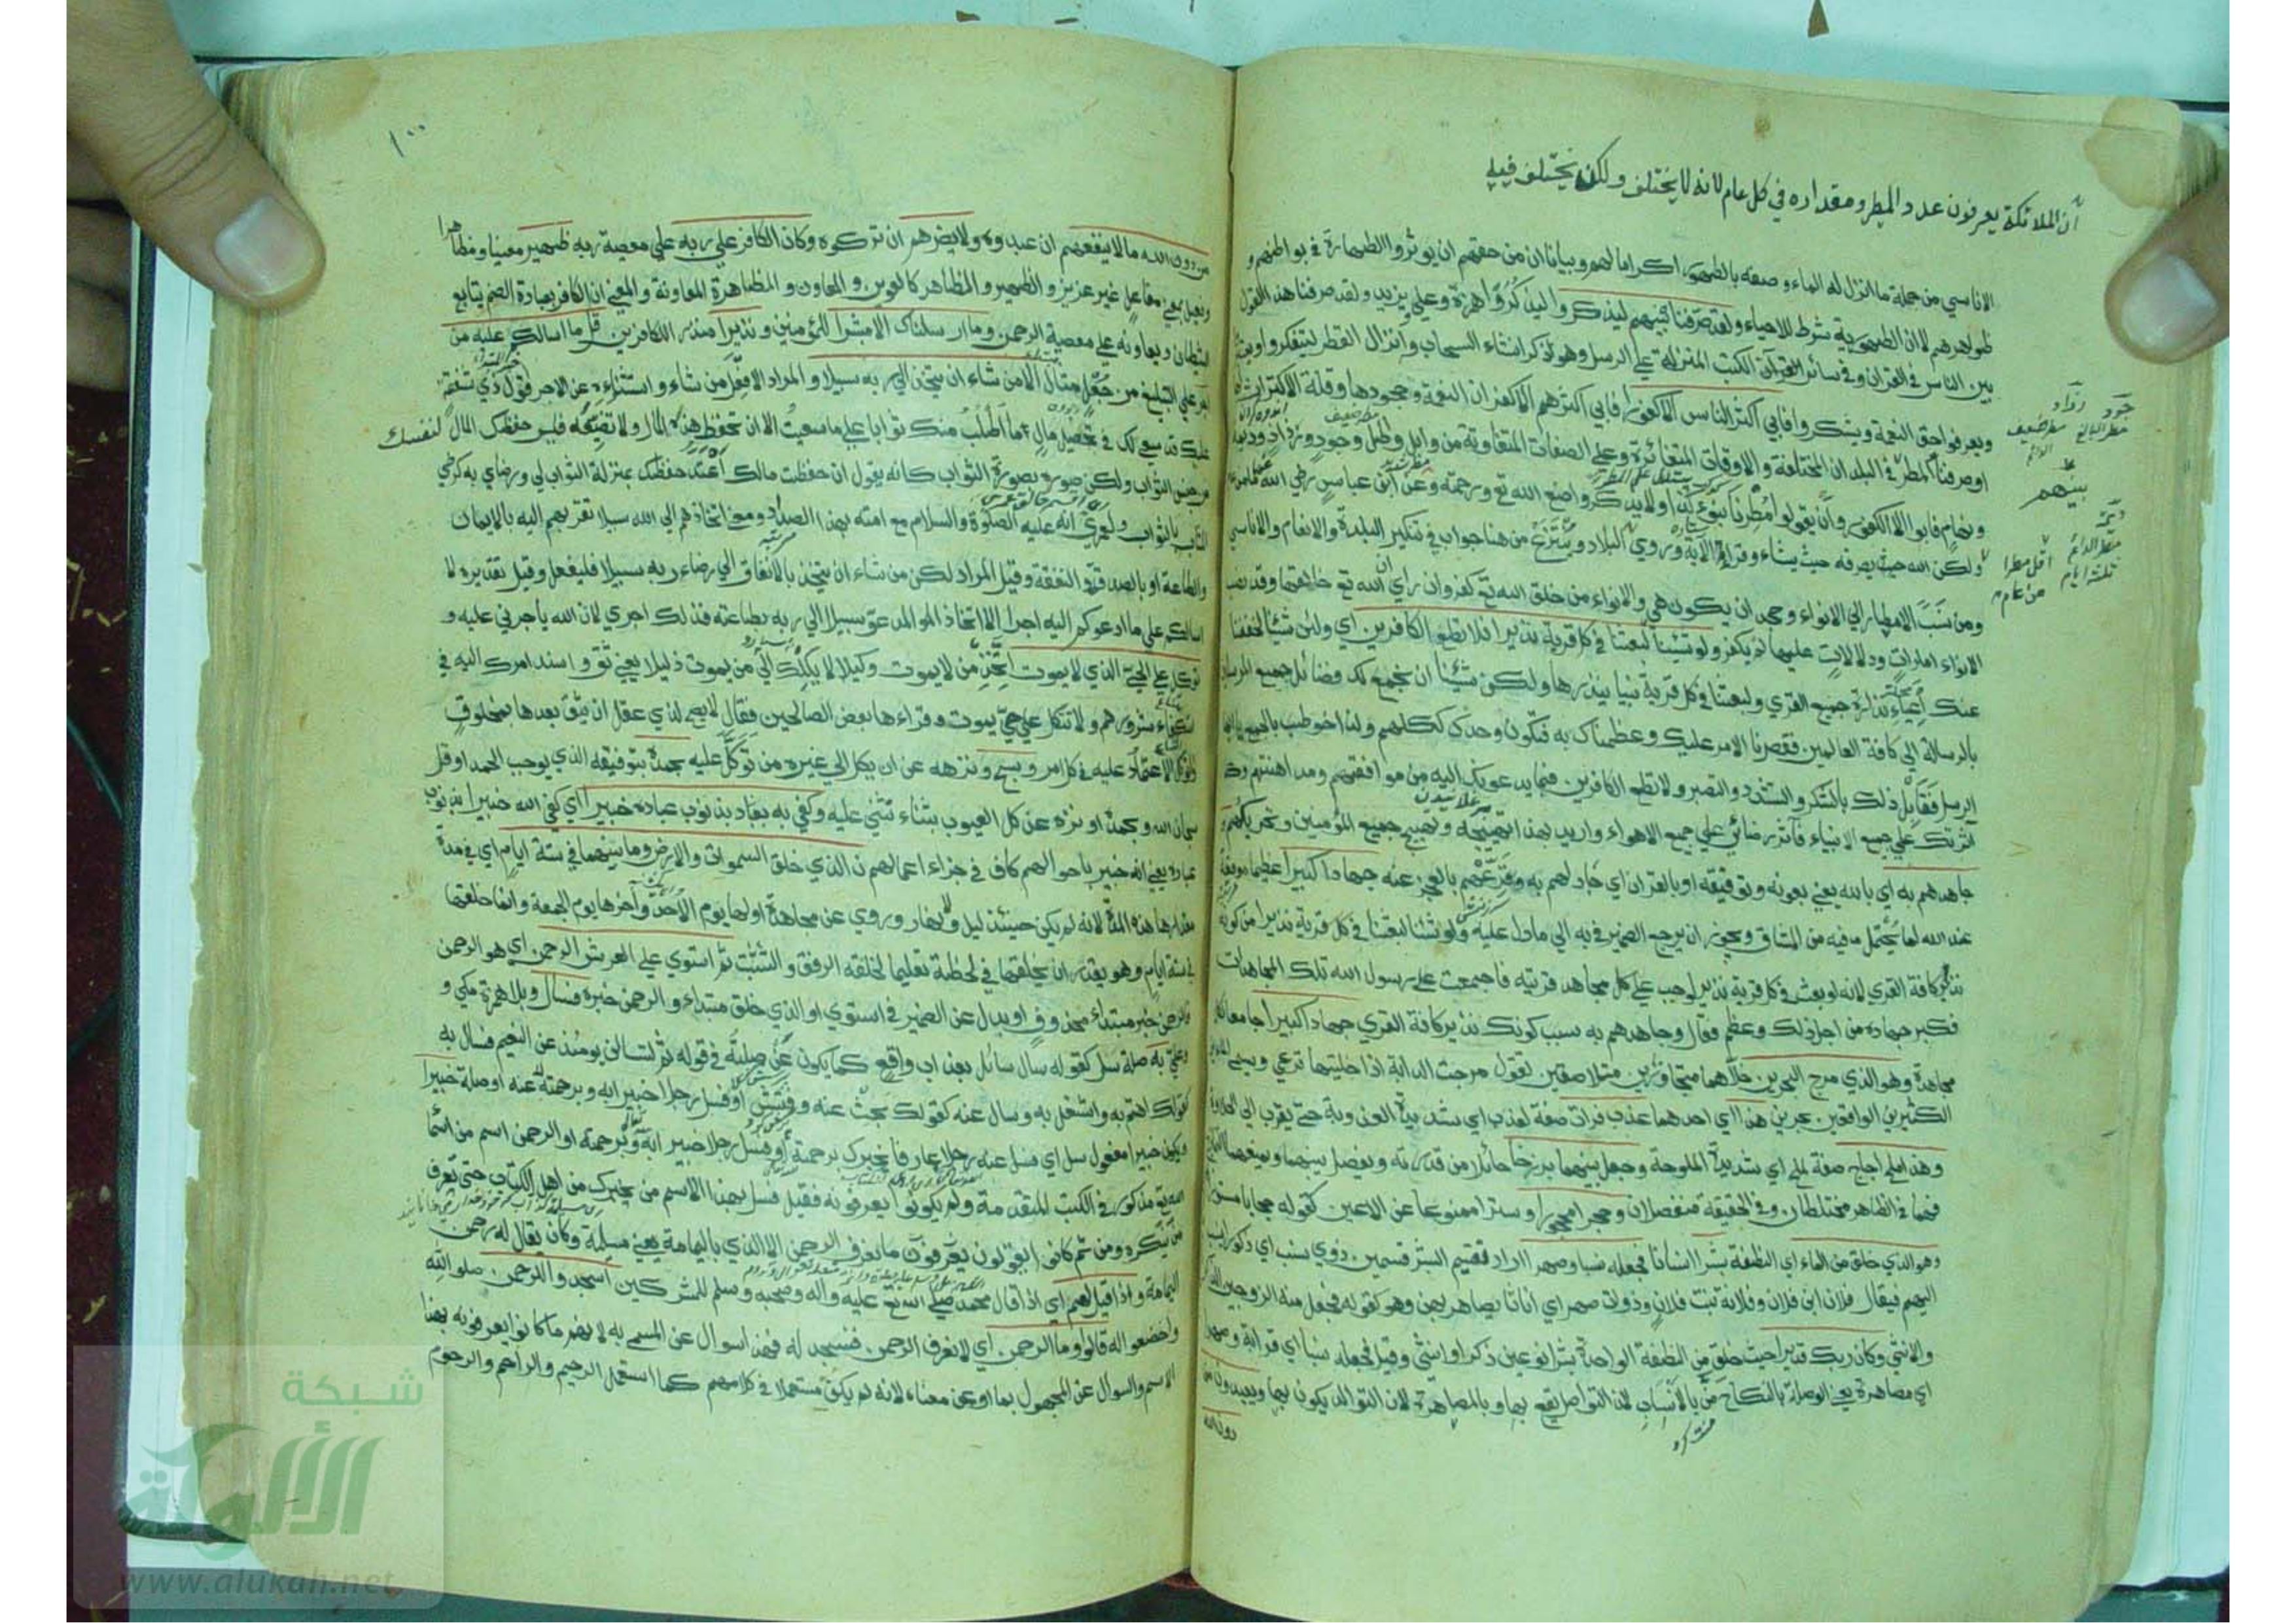 أن الملائكة يعرفون عدد المطر ومقداره في كل عام لانه لا يختلف ولكن يختلف فيه
الاناسي من جملة ما انزل له الماء وصفه بالطهور اكراما لهم وبيانا ان من حقهم ان يوثروا الطهارة في بواطنهم و
ظواهرهم لان الطهورية شرط للاحياء ولقد صرفنا بينهم ليذكروا ليذكروا حمزة وعلي يريد ولقد صرفنا هذا القول
بين الناس في القران وفي سائر الكتب المنزلة علي الرسل وهو ذكر انشاء السحاب وانزال القطر ليتفكروا ويعتبروا
ويعرفوا حق النعمة ويشكروا فابي اكثر الناس الا كفورا فابي اكثرهم الا كفران النعمة وجحودها وقلة الاكتراث لها
او صرفنا المطر في البلدان المختلفة والاوقات المتغائرة وعلي الصفات المتفاوتة من وابل وطل وجود ورذاذ وديمة
فابوا الا الكفور وان يقولوا مطرنا بنوء كذا ولا يذكروا صنع الله تع ورحمته وعن ابن عباس رضي الله عنهما ما من عام
ولكن الله يصرفه حيث يشاء وقراء الآية وروي البلاد وينتزع من هنا جواب في تنكير البلدة والانعام والاناسي
ومن نسب الامطار الي الانواء وجحد ان يكون هي والانواء من خلق الله تع كفر وان راي ان الله تع خالقها وقد نصب
الانواء امارات ودلالات عليها لم يكفر ولو شئنا لبعثنا في كل قرية نذيرا فلا تطع الكافرين اي ولو شئنا لخففنا
عنك اعباء نذارة جميع القري ولبعثنا في كل قرية نبيا ينذرها ولكن شئنا ان نجمع لك فضائل جميع المرسلين
بالرسالة الي كافة العالمين فقصرنا الامر عليك وعظمناك به فتكون وحدك ككلهم ولذا خوطب بالجمع يا ايها
الرسل فقابل ذلك بالشكر والتشدد والتصبر ولا تطع الكافرين فيما يدعونك اليه من موافقتهم ومداهنتهم وكما
اثرتك علي جميع الانبياء فآثر رضائي علي جميع الاهواء واريد بهذا تهييجه وتهييج جميع المؤمنين وتحريكهم و
جاهدهم به اي بالله يعني بعونه وتوفيقه او بالقران اي جادلهم به وقرعهم بالعجز عنه جهادا كبيرا عظيما موقعه
عند الله لما يحتمل فيه من المشاق ويجوز ان يرجع الضمير في به الي ما دل عليه ولو شئنا لبعثنا في كل قرية نذيرا من كونه
نذير كافة القري لانه لو بعث في كل قرية نذيرا لوجب علي كل مجاهد قريته فاجتمعت علي رسول الله تلك المجاهدات
فكبر جهاده من اجل ذلك وعظم فقال وجاهدهم به بسبب كونك نذير كافة القري جهادا كبيرا جامعا لكل
مجاهدة وهو الذي مرج البحرين خلاهما متجاورين متلاصقين تقول مرجت الدابة اذا خليتها ترعي وسمي الماءين
الكثيرين الواقعين بحرين هذا اي احدهما عذب فرات صفة لعذب اي شديد العذوبة حتي يقرب الي الحلاوة
وهذا ملح اجاج صفة لملح اي شديد الملوحة وجعل بينهما برزخا حائلا من قدرته يفصل بينهما ويمنعهما التمازج
فهما في الظاهر مختلطان وفي الحقيقة منفصلان وحجرا محجورا وسترا ممنوعا عن الاعين كقوله حجابا مستورا
وهو الذي خلق من الماء اي النطفة بشرا انسانا فجعله نسبا وصهرا اراد تقسيم البشر قسمين ذوي نسب اي ذكورا ينسب
اليهم فيقال فلان ابن فلان وفلانة بنت فلان وذوات صهر اي اناثا يصاهر بهن وهو كقوله فجعل منه الزوجين الذكر
والانثي وكان ربك قديرا حيث خلق من النطفة الواحدة بشرا نوعين ذكرا وانثي وقيل فجعله نسبا اي قرابة وصهرا
اي مصاهرة يعني الوصلة بالنكاح من باب الانساب لان التواصل يقع بها وبالمصاهرة لان التوالد يكون بهما ويعبدون من
دون الله
جود رذاذ
مطر البالغ مطر ضعيف
بينهم
ديمة
مطر الدائم
ثلثة ايام
اقل مطرا
من عام
١٠٠
من دون الله ما لا ينفعهم ان عبدوه ولا يضرهم ان تركوه وكان الكافر علي ربه علي معصية ربه ظهيرا معينا ومظاهرا
وفعيل بمعني مفاعل غير عزيز والظهير والمظاهر كالعوين والمعاون والمظاهرة المعاونة والمعني ان الكافر بعبادة الصنم يتابع
الشيطان ويعاونه علي معصية الرحمن وما ارسلناك الا مبشرا للمؤمنين ونذيرا منذرا للكافرين قل ما اسالكم عليه من
اجر علي التبليغ من جعل مثال الا من شاء ان يتخذ الي ربه سبيلا والمراد الا فعل من شاء واستثناءه عن الاجر قول ذي شفقة
عليك قد سعي لك في تحصيل مال ما اطلب منك ثوابا علي ما سعيت الا ان تحفظ هذا المال ولا تضيعه فليس حفظك المال لنفسك
من جنس الثواب ولكن صوره بصورة الثواب كانه يقول ان حفظت مالك اعتد حفظك بمنزلة الثواب لي ورضاي به كرضي
المثاب بالثواب ولعمري انه عليه الصلوة والسلام مع امته بهذا الصدد ومعني اتخاذهم الي الله سبيلا تقربهم اليه بالايمان
والطاعة او بالصدقة والنفقة وقيل المراد لكن من شاء ان يتخذ بالانفاق الي رضاء ربه سبيلا فليفعل وقيل تقديره لا
اسالكم علي ما ادعوكم اليه اجرا الا اتخاذ المدعو سبيلا الي ربه بطاعته فذلك اجري لان الله ياجرني عليه و
توكل علي الحي الذي لا يموت اتخذ من لا يموت وكيلا لا يكلك الي من يموت ذليلا يعني ثق واسند امرك اليه في
استكفاء شرورهم ولا تتكل علي حي يموت وقراءها بعض الصالحين فقال لا يصح لذي عقل ان يثق بعدها بمخلوق
والتوكل الاعتماد عليه في كل امر وسبح ونزهه عن ان يكل الي غيره من توكل عليه بحمده بتوفيقه الذي يوجب الحمد او قل
سبحان الله وبحمده او نزهه عن كل العيوب بثناء تثني عليه وكفي به بذنوب عباده خبيرا اي كفي الله خبيرا بذنوب
عباده يعني انه خبير باحوالهم كاف في جزاء اعمالهم ن الذي خلق السموات والارض وما بينهما في ستة ايام اي في مدة
مقدارها هذه المدة لانه لم يكن حينئذ ليل ولا نهار وروي عن مجاهد اولها يوم الاحد وآخرها يوم الجمعة وانما خلقها
في ستة ايام وهو يقدر ان يخلقها في لحظة تعليما لخلقه الرفق والتثبت ثم استوي علي العرش الرحمن اي هو الرحمن
فالرحمن خبر مبتداء محذوف او بدل عن الضمير في استوي او الذي خلق مبتداء والرحمن خبره فسال وبلا همزة مكي و
وعلي به صلة سل كقوله سال سائل بعذاب واقع كما يكون عن صلته في قوله ثم لتسالن يومئذ عن النعيم فسال به
كقولك اهتم به واشتغل به وسال عنه كقولك بحث عنه وفتش او فسل رجلا خبيرا به وبرحمته عنه او صلة خبيرا
ويكون خبيرا مفعول سل اي فسل عنه رجلا عارفا يخبرك برحمته او فسل رجلا خبيرا به وبرحمته او الرحمن اسم من اسماء
الله تع مذكور في الكتب المتقدمة ولم يكونوا يعرفونه فقيل فسل بهذا الاسم من يخبرك من اهل الكتاب حتي تعرف
من ينكره ومن ثم كانوا يقولون ما نعرف الرحمن الا الذي باليمامة يعني مسيلمة وكان يقال له رحمن
اليمامة واذا قيل لهم اي اذا قال محمد صلي الله تع عليه وآله وصحبه وسلم للمشركين اسجدوا للرحمن صلوا لله
واخضعوا له قالوا وما الرحمن اي لا نعرف الرحمن فنسجد له فهذا سوال عن المسمي به لانهم ما كانوا يعرفونه بهذا
الاسم والسوال عن المجهول بما او عن معناه لانه لم يكن مستعملا في كلامهم كما استعمل الرحيم والراحم والرحوم
شبكة
الألوكة
www.alukah.net